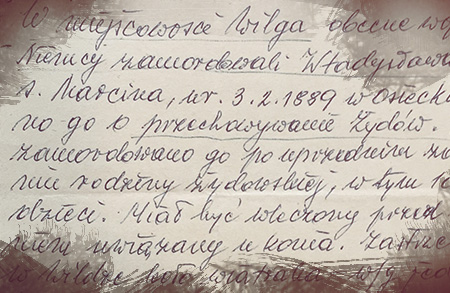 W miejscowość Wilga obecne wo
Niemcy zamordowali Władysława
s. Marcina, ur. 3.2.1889 w Osiecku
no go o przechowywanie Żydów.
zamordowano go po uprzednim za
niu rodziny żydowskiej, w tym
dzieci. Miał być wleczony przed
niem uwiązany u konia. Zastrze
w Wildze było